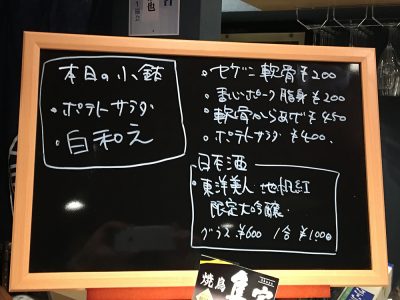 本日の小鉢
・ポテトサラダ
・白和え
・セゲニ軟骨 ¥200
・香心ポーク脂身 ¥200
・軟骨からあげ ¥450
・ポテトサラダ ¥400.
日本酒
・東洋美人
限定大吟醸.
グラス.¥600 1合 ¥1,000
焼鳥